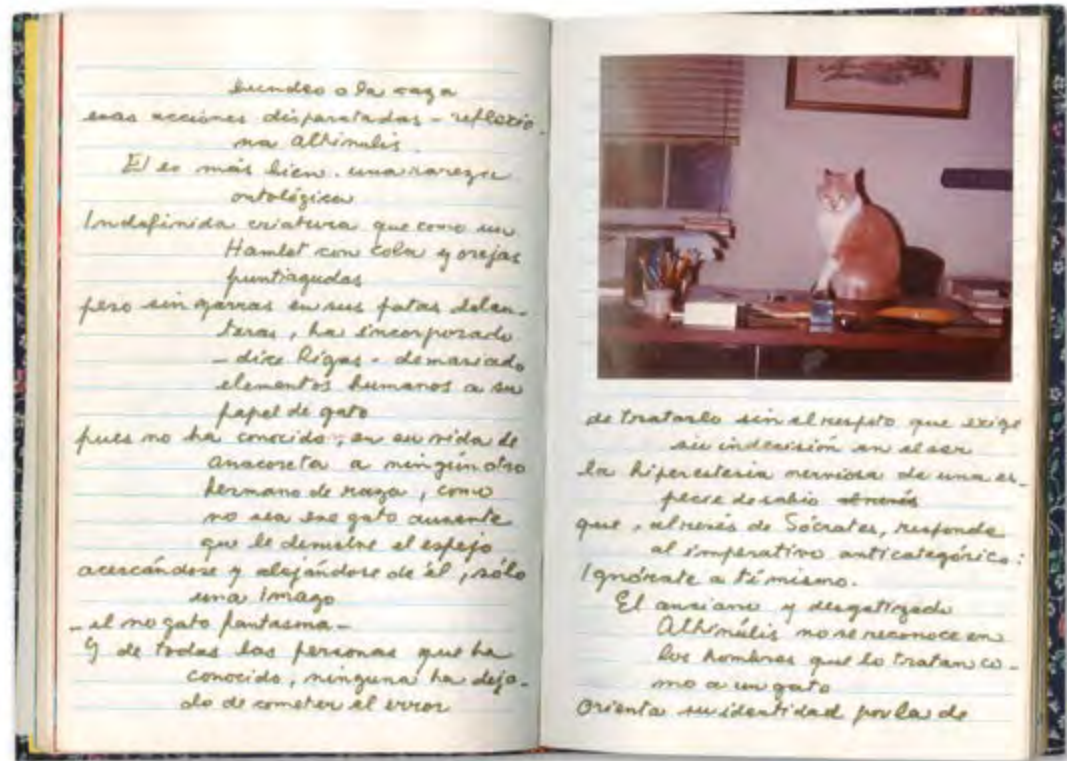 hundeo a la caza
esas acciones disparatadas - reflexio-
na Alhinulis.
El es más bien una rareza
ontológica
Indefinida criatura que como un
Hamlet con cola y orejas
puntiagudas
pero sin garras en sus patas delan-
teras, ha incorporado
- dice Rigas - demasiado
elementos humanos a su
papel de gato
pues no ha conocido, en su vida de
anacoreta a ningún otro
hermano de raza, como
no sea ese gato ausente
que le devuelve el espejo
acercándose y alejándose de él, sólo
una Imago
- el no gato fantasma -
Y de todas las personas que ha
conocido, ninguna ha deja-
do de cometer el error
de tratarlo sin el respeto que exige
su indecisión en el ser
la hiperestesia nerviosa de una es-
pecie de sabio al revés
que, al revés de Sócrates, responde
al imperativo anticategórico:
Ignórate a ti mismo.
El anciano y desgatizado
Alhinúlis no se reconoce en
los hombres que lo tratan co-
mo a un gato
Orienta su identidad por la de